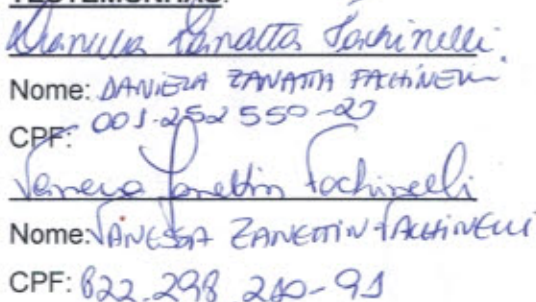 TESTEMUNHAS:
Daniela Zanatta Fachinelli
Nome: DANIELA ZANATTA FACHINELLI
CPF: 001.252 550-20
Vanessa Zanettin Fachinelli
Nome: VANESSA ZANETTIN FACHINELLI
CPF: 822.298 210-91